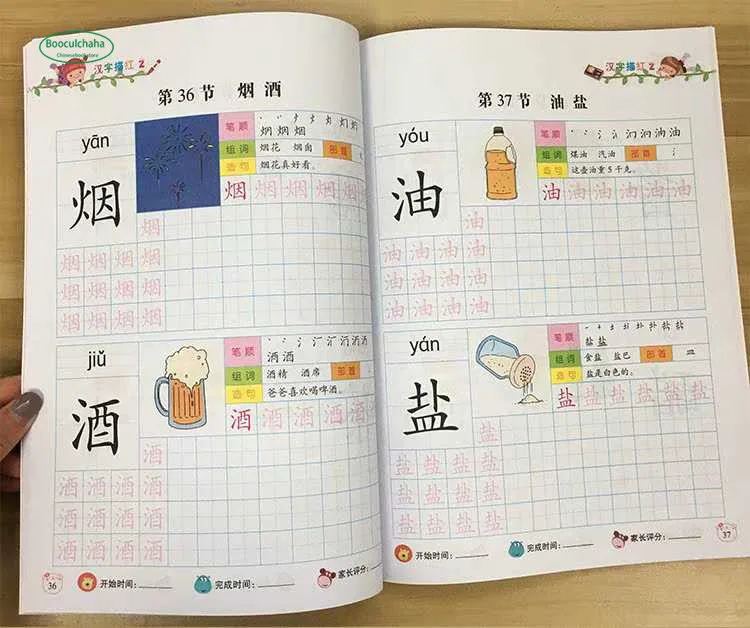 Booculchaha
Chinesebookstore
汉字描红 2
第 36 节 烟 酒
yān
烟
笔 顺
烟 烟 烟
组 词 烟花 烟囱 部 首
造 句 烟花真好看。
烟 烟 烟 烟 烟 烟
烟
烟 烟 烟 烟
烟 烟 烟 烟
烟 烟 烟 烟
jiǔ
酒
笔 顺
洒 酒
组 词 酒精 酒席 部 首 氵
造 句 爸爸喜欢喝啤酒。
酒 酒 酒 酒 酒 酒
酒
酒 酒 酒 酒
酒 酒 酒 酒
酒 酒 酒 酒
36 开始时间: 完成时间: 家长评分:
汉字描红 2
第 37 节 油 盐
yóu
油
笔 顺
组 词 煤油 汽油 部 首 氵
造 句 这壶油重 5 千克。
油 油 油 油 油 油
油
油 油 油 油
油 油 油 油
油 油 油 油
yán
盐
笔 顺
盐 盐
组 词 食盐 盐巴 部 首 皿
造 句 盐是白色的。
盐 盐 盐 盐 盐 盐
盐
盐 盐 盐 盐
盐 盐 盐 盐
盐 盐 盐 盐
开始时间: 完成时间: 家长评分: 37